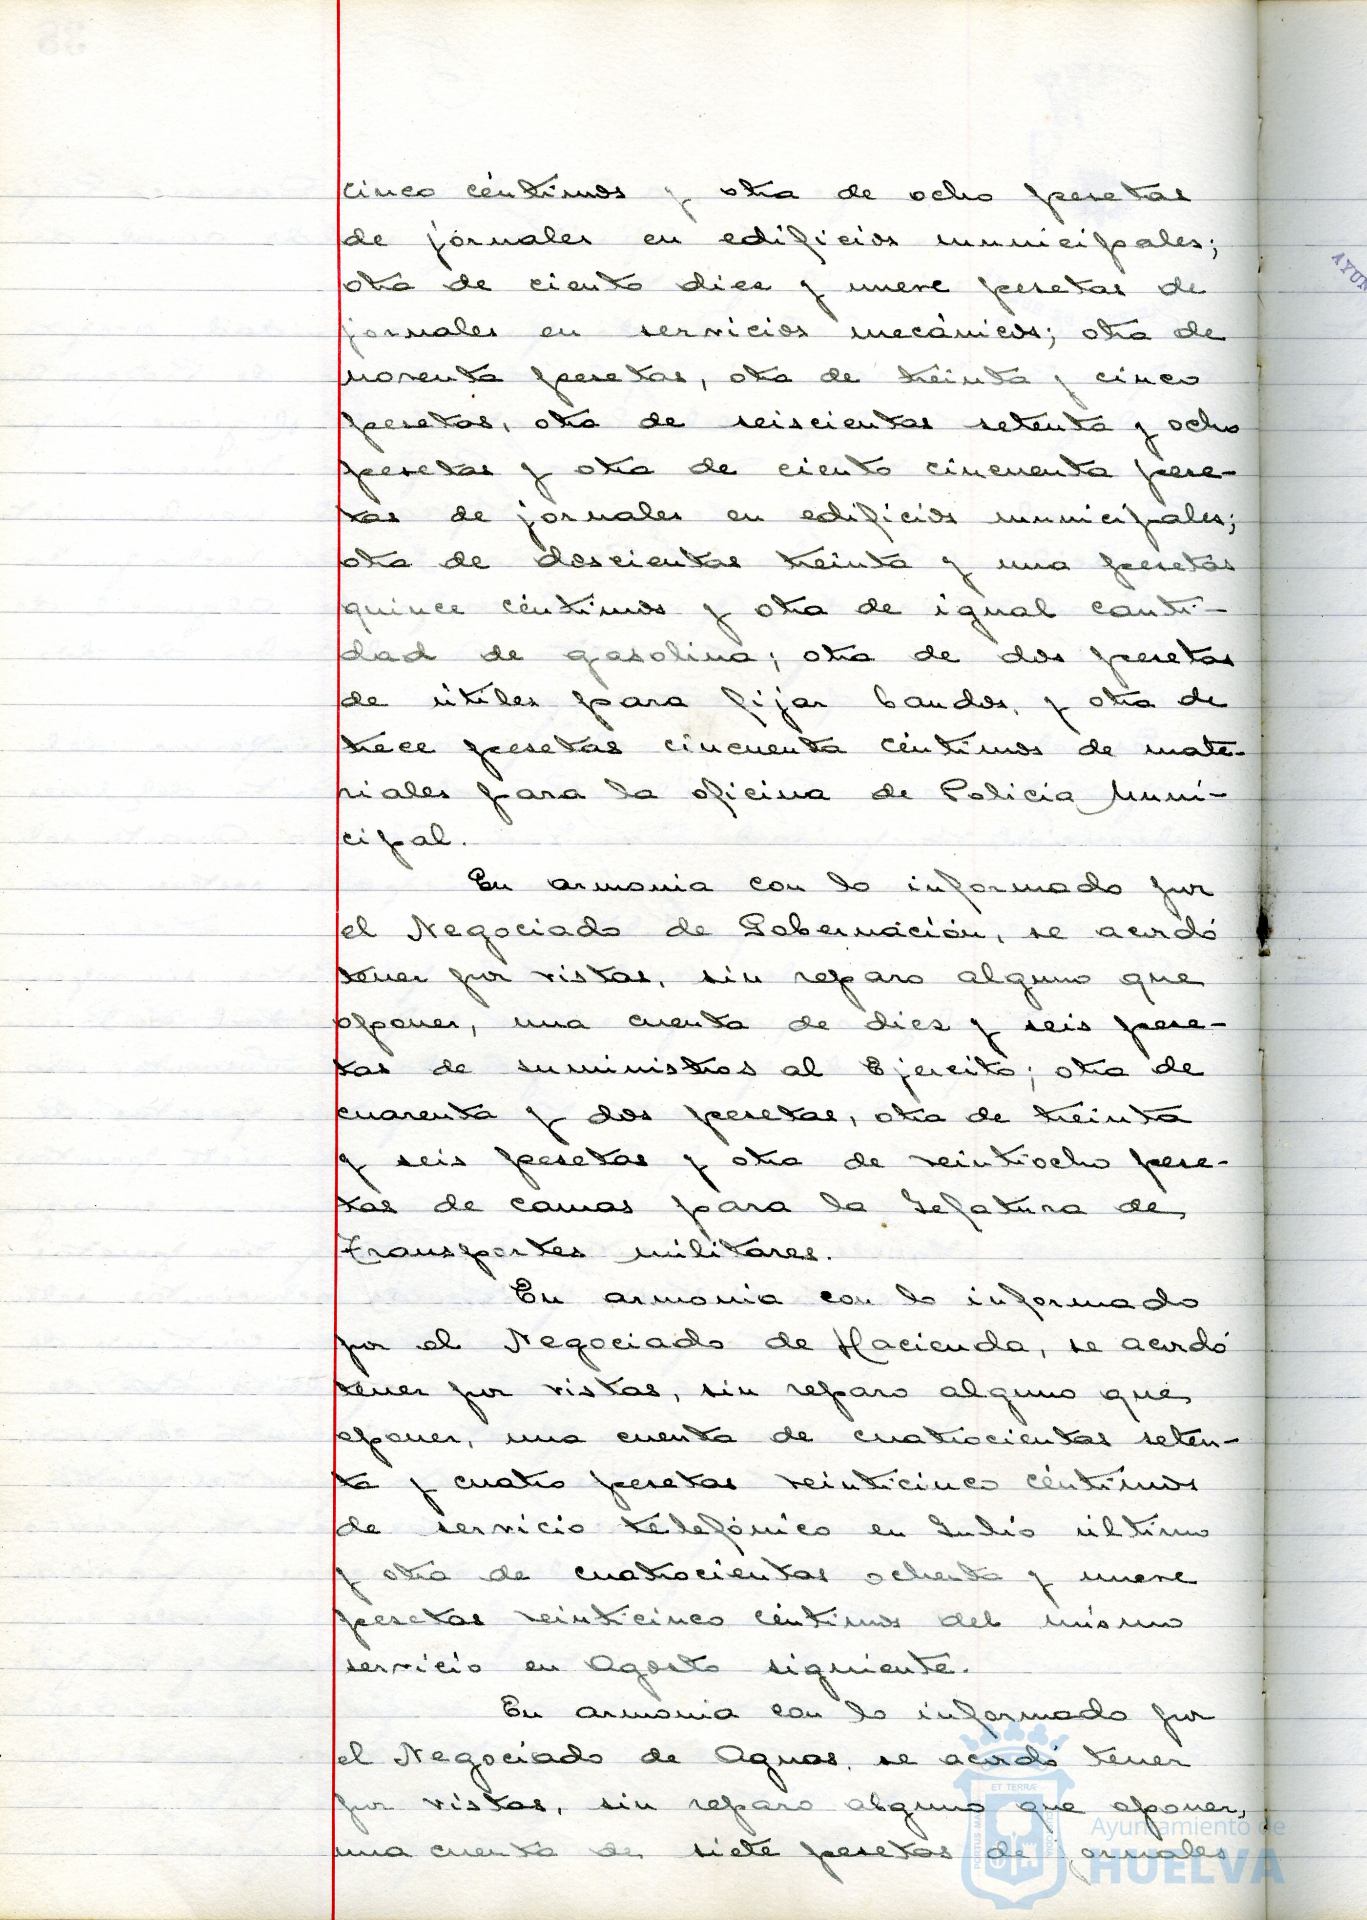 cinco céntimos y otra de ocho pesetas
de jornales en edificios municipales;
otra de ciento diez y nueve pesetas de
jornales en servicios mecánicos; otra de
noventa pesetas, otra de treinta y cinco
pesetas, otra de seiscientas setenta y ocho
pesetas y otra de ciento cincuenta pese-
tas de jornales en edificios municipales;
otra de doscientas treinta y una pesetas
quince céntimos y otra de igual canti-
dad de gasolina; otra de dos pesetas
de útiles para fijar bandos, y otra de
trece pesetas cincuenta céntimos de mate-
riales para la oficina de Policía Muni-
cipal.
En armonia con lo informado por
el Negociado de Gobernación, se acordó
tener por vistas, sin reparo alguno que
oponer, una cuenta de diez y seis pese-
tas de suministros al Ejercito; otra de
cuarenta y dos pesetas, otra de treinta
y seis pesetas y otra de veintiocho pese-
tas de camas para la Gefatura de
Transportes militares.
En armonia con lo informado
por el Negociado de Hacienda, se acordó
tener por vistas, sin reparo alguno que
oponer, una cuenta de cuatrocientas seten-
ta y cuatro pesetas veinticinco céntimos
de servicio telefónico en Julio último
y otra de cuatrocientas ochenta y nueve
pesetas veinticinco céntimos del mismo
servicio en Agosto siguiente.
En armonia con lo informado por
el Negociado de Aguas, se acordó tener
por vistas, sin reparo alguno que oponer,
una cuenta de siete pesetas de jornales
Ayuntamiento de
HUELVA